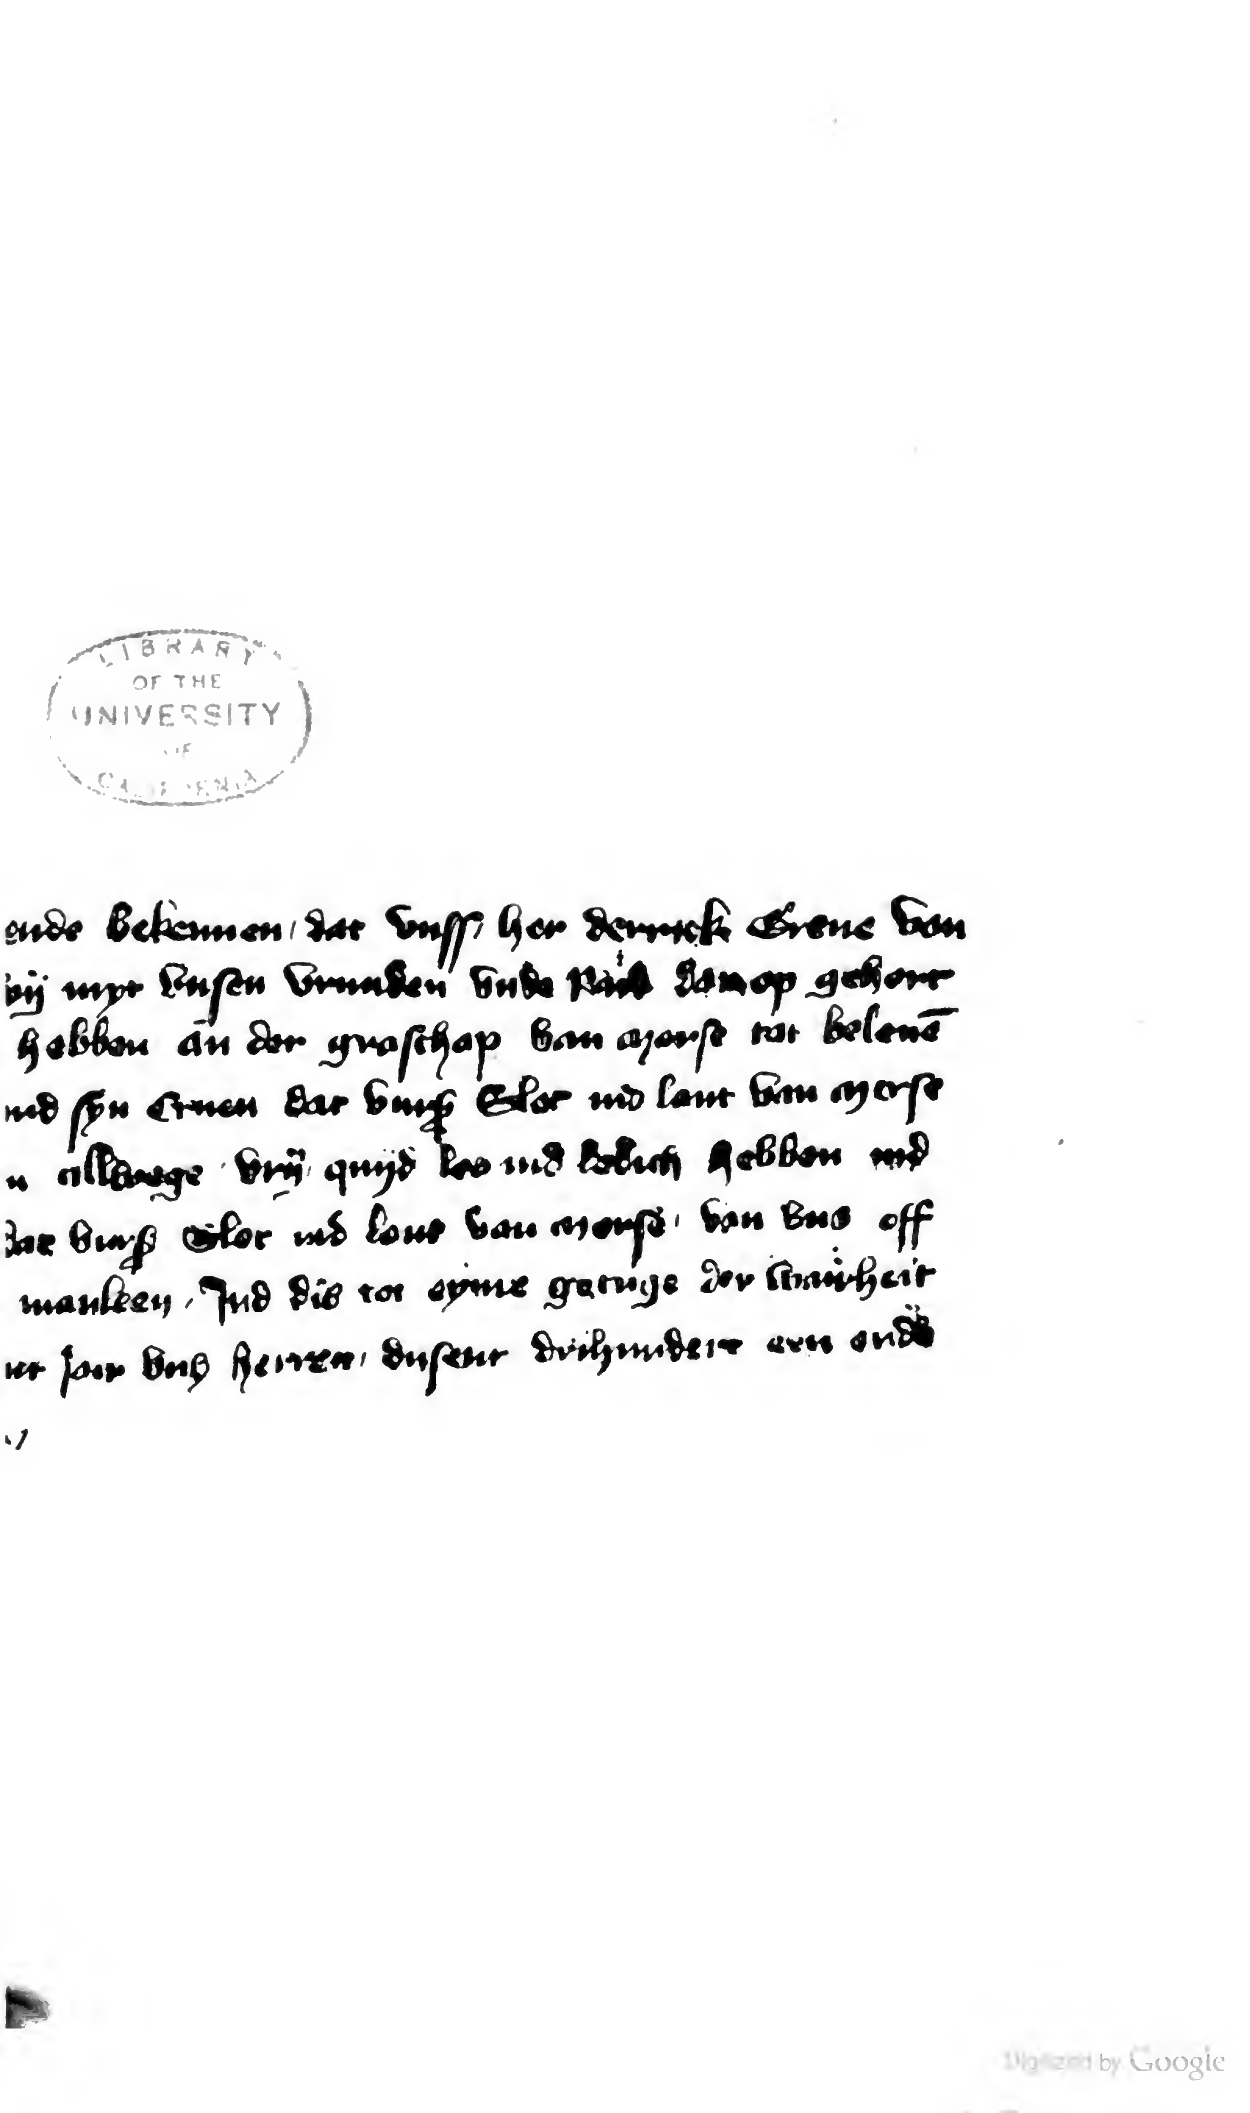 LIBRARY
OF THE
UNIVERSITY
OF
CALIFORNIA
ende bekennen / dat vnss / her derrick Greue van
vij myt vnsen vrunden vnde Raid dar op gehort
hebben an der graschap van Morse tot belenē
ind syn Eruen dat vurß Slot ind lant van Morse
n allwege / vrÿ / quijd los ind ledich hebben ind
dat vurß Slot ind lant van Morse / van vns off
manleen / Ind dis tot eyme getuge der wairheit
Jair vnß herren / dusent drihundert een ende
Digitized by Google